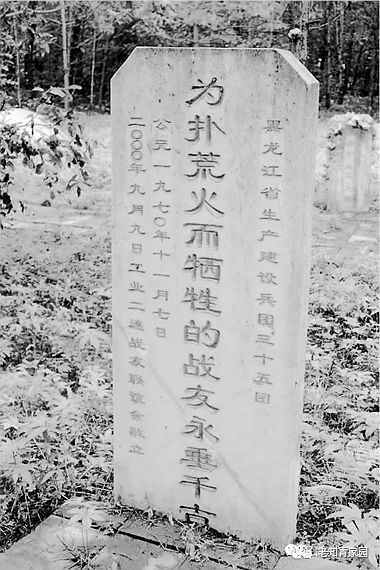 黑龙江省生产建设兵团三十五团
为扑荒火而牺牲的战友永垂千古
公元一九七〇年十一月七日
二〇〇〇年九月九日工业二连战友联谊会敬立
老知青家园